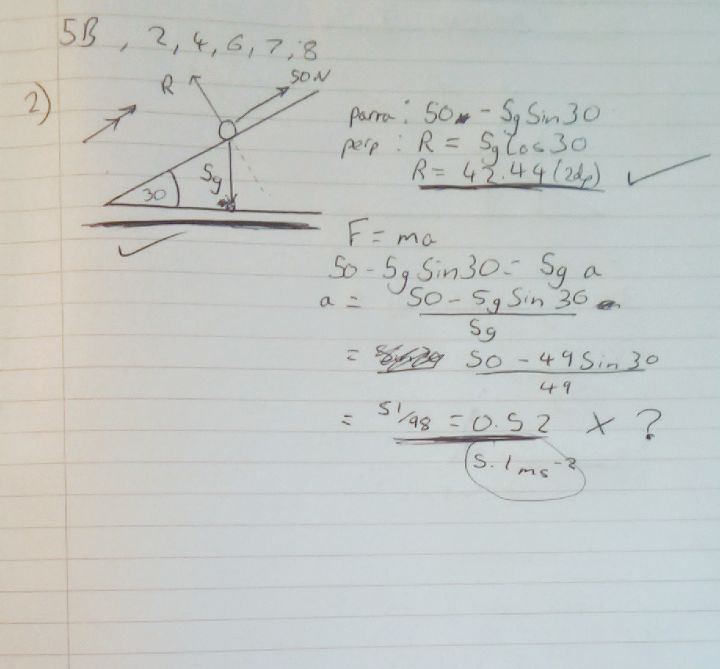 5B, 2, 4, 6, 7, 8
2)
R
50N
5g
30
parra: 50 - 5g Sin 30
perp: R = 5g Cos 30
R = 42.44 (2dp)
F = ma
50 - 5g Sin 30 = 5g a
a = 50 - 5g Sin 30
5g
= 50 - 49 Sin 30
49
= 51/98 = 0.52 × ?
5.1 ms⁻²